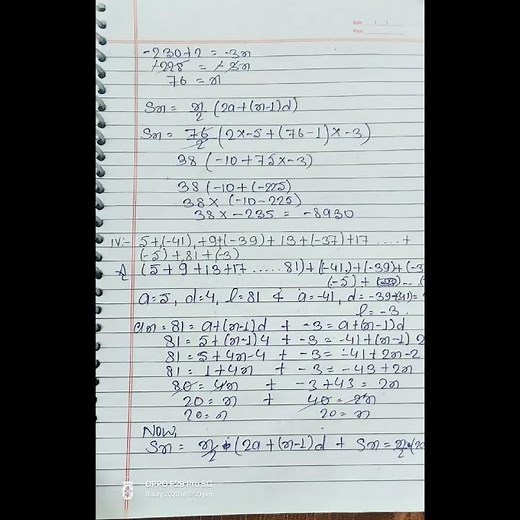 -230+2 = -3n
-228 = -3n
76 = n
Sn = n/2 (2a+(n-1)d)
Sn = 76/2 (2x-5+(76-1)x-3)
38 (-10+75x-3)
38(-10+(-225)
38x (-10-225)
38x-235 = -8930
IV:- 5+(-41)+9+(-39)+13+(-37)+17 ....+
(-5)+81+(-3)
(5+9+13+17 ..... 81)+(-41)+(-39)+(-3
(-5)+
a=5, d=4, l=81 & a=-41, d=-39+(41)=
l=-3
an=81=a+(n-1)d + -3=a+(n-1)d
81=5+(n-1)4 + -3=-41+(n-1)2
81=5+4n-4 + -3=-41+2n-2
81=1+4n + -3=-43+2n
80=4n + -3+43=2n
20=n + 40=2n
20=n 20=n
Now,
Sn = n/2 (2a+(n-1)d + Sn=n/2(2a
OPPO F29 Pro 5G